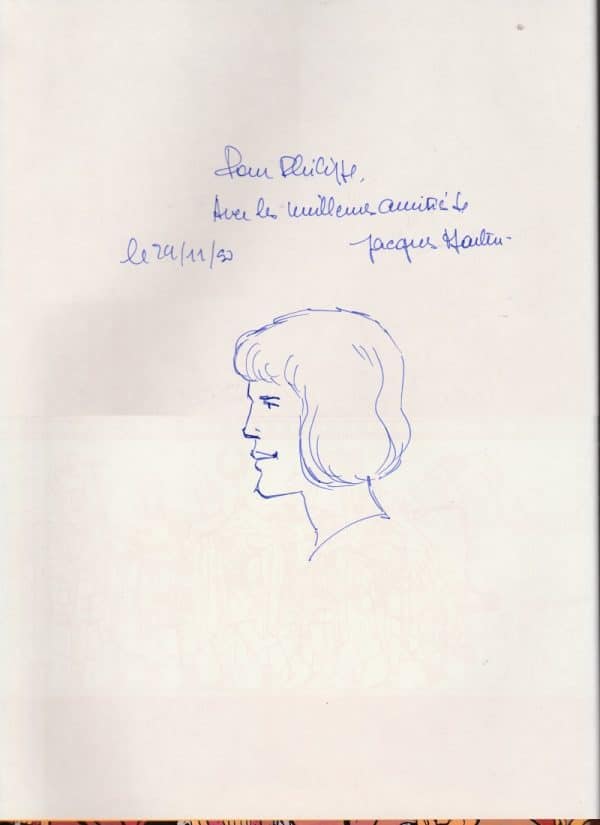 Pour Philippe,
Avec les meilleures amitiés de
le 29/11/90
Jacques Martin